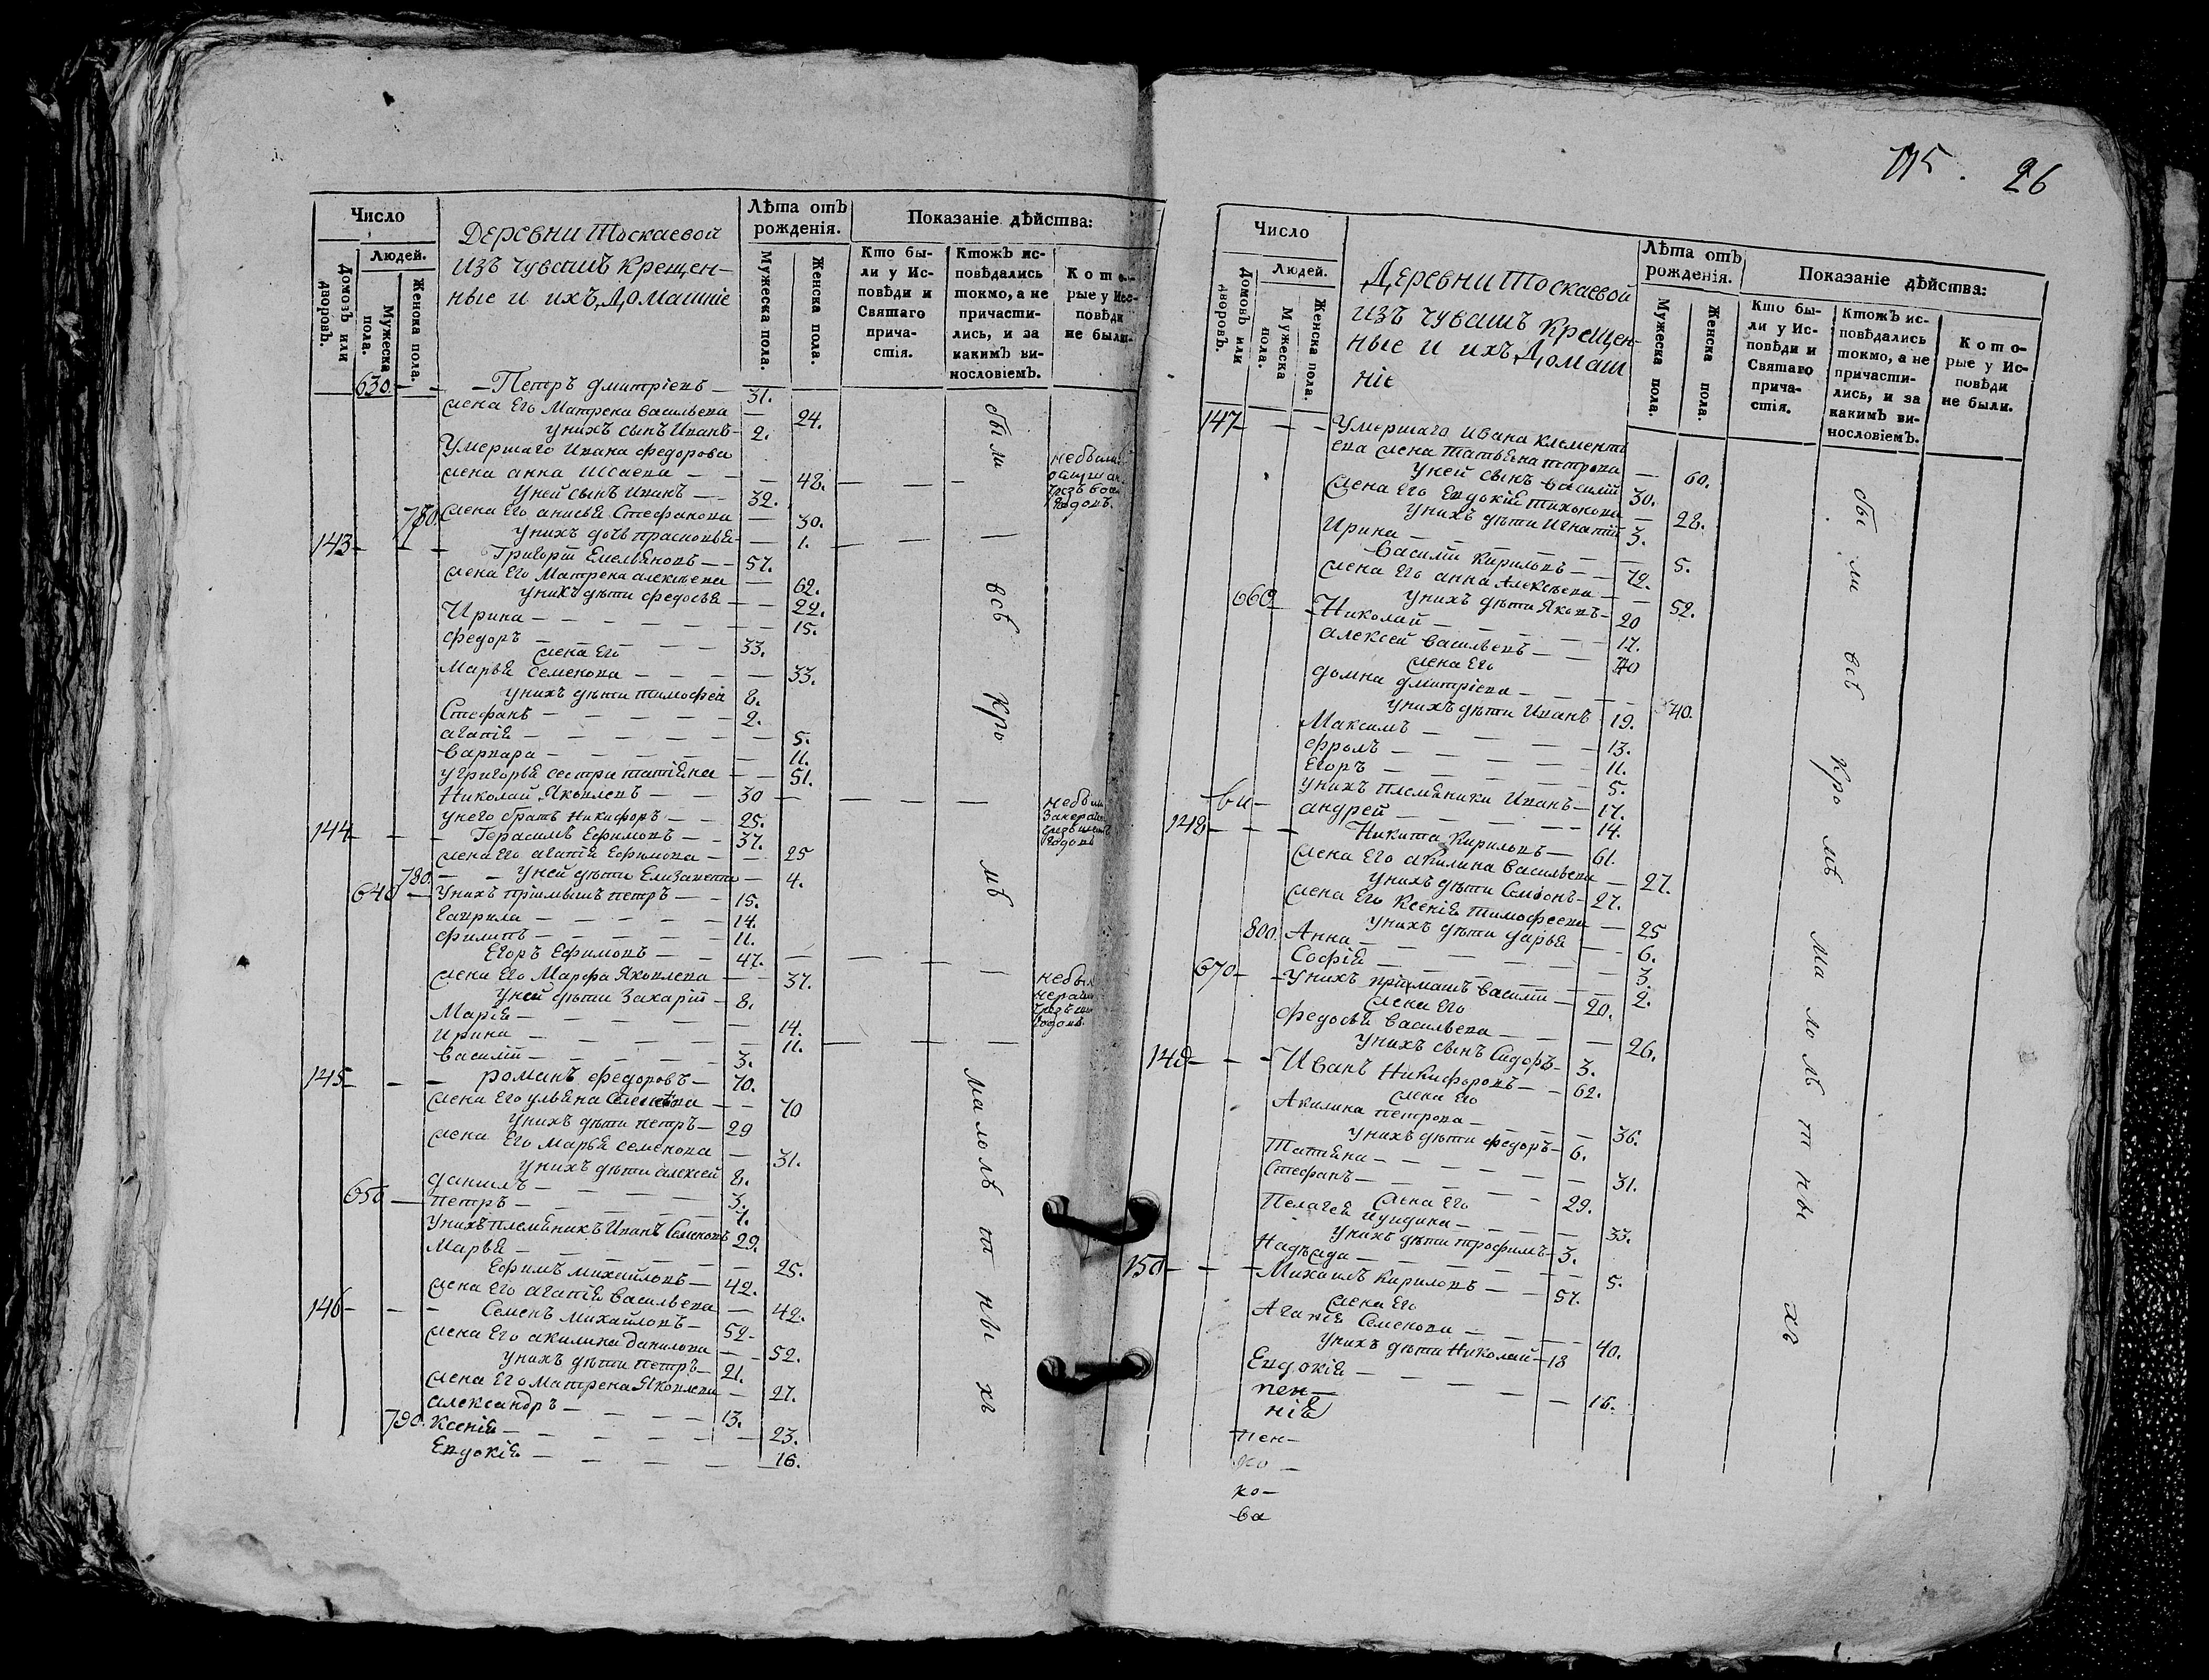 Число
Людей.
Домовъ или дворовъ.
Мужеска пола.
Женска пола.
Деревни Тоскаевой
изъ чувашъ крещен-
ные и ихъ домашніе
Лѣта отъ рожденія.
Мужеска пола.
Женска пола.
Показаніе дѣйства:
Кто бы-
ли у Ис-
повѣди и
Святаго
прича-
стія.
Ктожъ ис-
повѣдались
токмо, а не
причасти-
лись, и за
какимъ ви-
нословіемъ.
Кото-
рые у Ис-
повѣди
не были.
630. — — Петръ Дмитріевъ — 31.
жена Его Матрена васильева — 24.
унихъ сынъ Иванъ — 2.
Умершаго Ивана федорова
жена анна Исаева — 48.
уней сынъ Иванъ — 32.
770. жена Его анисья Стефанова — 30.
унихъ дочь прасковья — 1.
143 — Григорій Емельяновъ — 57.
жена Его Матрена алексѣева — 62.
унихъ дѣти федосья — 22.
Ирина — 15.
федоръ — 33.
жена Его
Марья семенова — 33.
унихъ дѣти тимофей 8.
Стефанъ — 2.
агапія — 5.
варвара — 11.
угригорья сестра татіяна — 51.
Николай Яковлевъ — 30
унего братъ никифоръ — 25.
144 — Герасимъ Ефимовъ — 37.
жена Его агапія Ефимова — 25
780. — уней дѣти Елизавета — 4.
640 — унихъ пріимышъ петръ — 15.
гаврила — 14.
филипъ — 11.
Егоръ Ефимовъ — 47.
жена Его Марфа Яковлева — 37.
уней дѣти Захарій — 8.
Марія — 14.
ирина — 11.
василій — 3.
145 — романъ федоровъ — 70.
жена Его ульяна — 70
унихъ дѣти петръ — 29
жена Его марья семенова — 31.
унихъ дѣти алексей 8.
данилъ — 3.
650 — петръ — 1.
унихъ племянникъ Иванъ Семеновъ 29.
Марья — 25.
Ефимъ михайловъ — 42.
жена Его агапія васильева — 42.
146 — Семенъ михайловъ — 52.
жена Его акилина данилова — 52.
унихъ дѣти петръ — 21.
жена Его матрена Яковлева — 27.
александръ — 13.
790. Ксенія — 23.
Евдокія — 16.
были всѣ кромѣ малолѣтныхъ
115. 26
Число
Людей.
Домовъ или дворовъ.
Мужеска пола.
Женска пола.
Деревни Тоскаевой
изъ чувашъ крещен-
ные и ихъ домаш
ніе
Лѣта отъ рожденія.
Мужеска пола.
Женска пола.
Показаніе дѣйства:
Кто бы-
ли у Ис-
повѣди и
Святаго
прича-
стія.
Ктожъ ис-
повѣдались
токмо, а не
причасти-
лись, и за
какимъ ви-
нословіемъ.
Кото-
рые у Ис-
повѣди
не были.
147 — Умершаго ивана клементі
ева жена татьяна петрова — 60.
уней сынъ василій 30.
жена Его Евдокія тихонова — 28.
унихъ дѣти игнатій 3.
Ирина — 5.
василій кириловъ — 72.
жена Его анна Алексѣева — 52.
унихъ дѣти Яковъ — 20
660 — Николай — 17.
алексей васильевъ — 40
жена Его
домна дмитріева — 40.
унихъ дѣти иванъ 19.
Максимъ — 13.
фролъ — 11.
Егоръ — 5.
унихъ племяники иванъ — 17.
андрей — 14.
148 — Никита Кириловъ — 61.
жена Его акилина васильева — 27.
унихъ дѣти Семіонъ — 27.
жена Его Ксенія тимофеева — 25
унихъ дѣти дарья — 6.
800. Анна — 3.
Софія — 2.
670 — унихъ пріимашъ василій — 20.
жена Его
федосья васильева — 26.
унихъ сынъ Сидоръ — 3.
149 — Иванъ Никифоровъ — 62.
жена Его
Акилина петрова — 36.
унихъ дѣти федоръ — 6.
Татіяна — 31.
Стефанъ — 29.
жена Его
Пелагея — 33.
унихъ дѣти трофимъ — 3.
Надѣжда — 5.
150 — Михаилъ кириловъ — 57.
жена Его
Агапія Семенова — 40.
унихъ дѣти Николай — 18
Евдокія — 16.
были всѣ кромѣ малолѣтныхъ